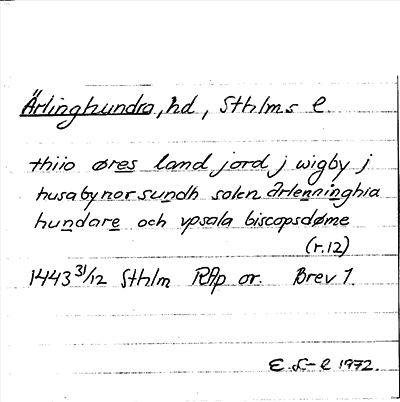 Ärlinghundra, hd, Sthlms l.
thiio øres land jord j wigby j
husaby nor sundh solen ærlenninghia
hundare och vpsala biscopsdøme
(r.12)
1443 31/12 Sthlm RAp or. Brev 1.
1972.